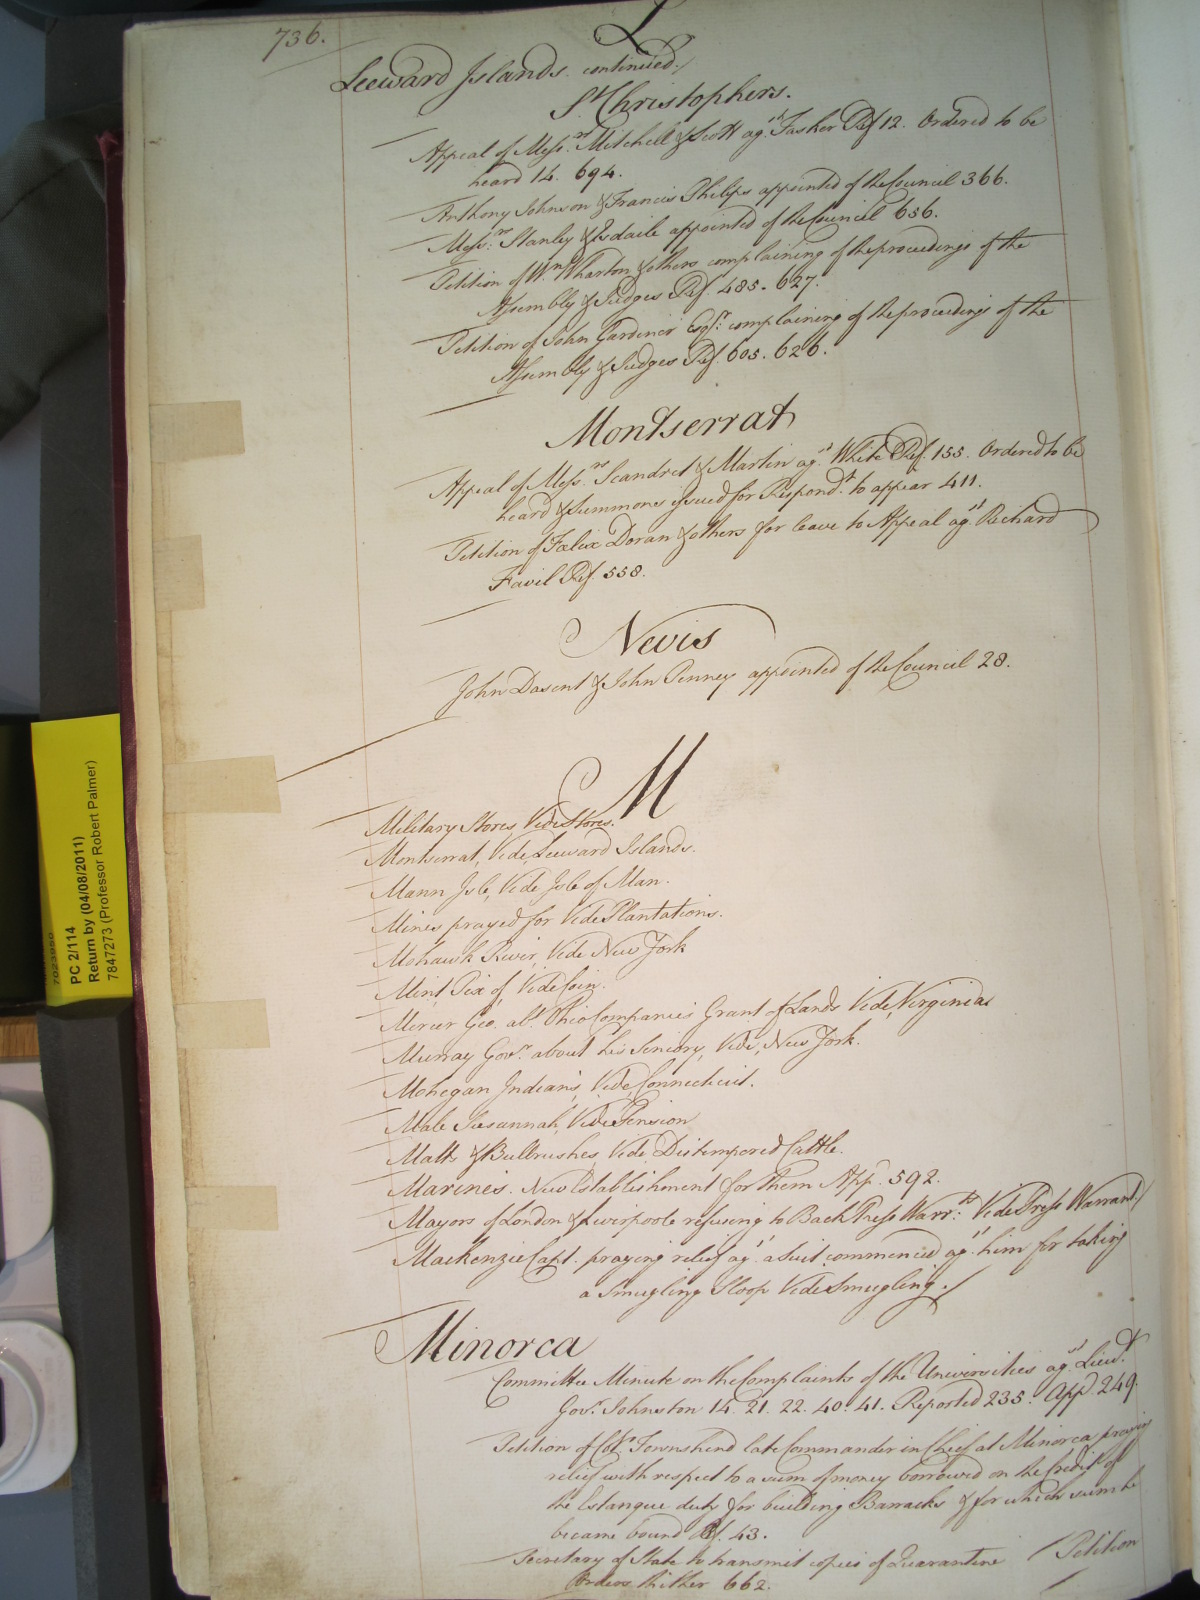 736.
L
Leeward Islands. continued./
St. Christophers.
Appeal of Messrs. Mitchell & Scott agst. Tasker Ref. 12. Ordered to be
heard 14. 694.
Anthony Johnson & Francis Philips appointed of the Council 366.
Messrs. Stanley & Esdaile appointed of the Council 656.
Petition of Wm. Wharton & others complaining of the proceedings of the
Assembly & Judges Ref. 485. 627.
Petition of John Gardiner Esqr. complaining of the proceedings of the
Assembly & Judges Ref. 605. 626.
Montserrat
Appeal of Messrs. Scandret & Martin agt. White Ref. 155. Ordered to be
heard & Summons issued for Respondt. to appear 411.
Petition of Fœlix Doran & others for leave to Appeal agst. Richard
Favil Ref. 558.
Nevis
John Dasent & John Penney appointed of the Council 28.
M
Military Stores, Vide Stores.
Montserrat, Vide, Leeward Islands.
Mann Isle, Vide Isle of Man.
Mines prayed for Vide Plantations.
Mohawk River, Vide New York
Mint, Pix of, Vide Coin.
Mercer Geo. abt. Ohio Companies Grant of Lands Vide, Virginia
Murray Govr. about his Seniory, Vide, New York.
Mohegan Indians, Vide, Connecticut.
Male Susannah, Vide Pension
Matts & Bullrushes, Vide Distempered Cattle.
Marines. New Establishment for them App. 592.
Mayors of London & Liverpoole refusing to Back Press Warrts. Vide Press Warrant/
Mackenzie Capt. praying relief agt. a Suit commenced agt. him for taking
a Smugling Sloop Vide Smugling./
Minorca
Committee Minute on the Complaints of the Universities agst. Lieut.
Govr. Johnston 14. 21. 22. 40. 41. Reported 235. Appd. 249.
Petition of Col. Townshend late Commander in Chief at Minorca praying
relief with respect to a sum of money borrowed on the Credit of
the Estanque duty for building Barracks & for which sum he
became bound Ref. 43.
Secretary of State to transmit copies of Quarantine
Orders thither 662.
/Petition
7023950
PC 2/114
Return by (04/08/2011)
7847273 (Professor Robert Palmer)